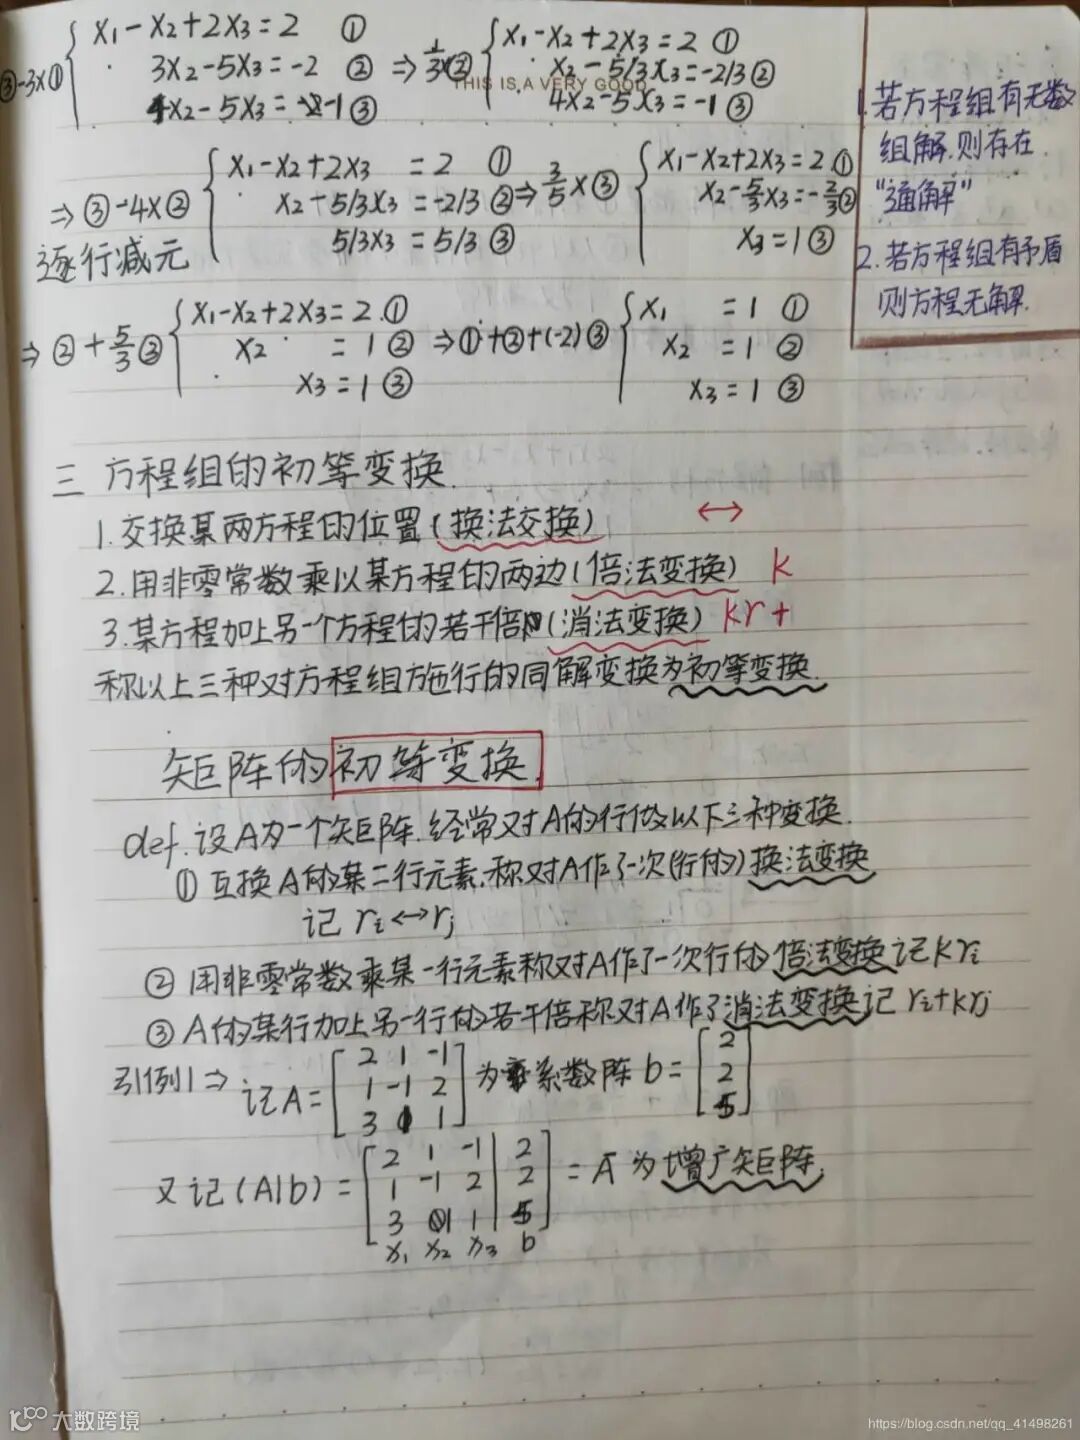 ③-3×① { x₁-x₂+2x₃=2 ① ⇒ 1/3×② { x₁-x₂+2x₃=2 ①
3x₂-5x₃=-2 ② x₂-5/3x₃=-2/3 ②
4x₂-5x₃=-1 ③ 4x₂-5x₃=-1 ③
THIS IS A VERY GOOD
1. 若方程组有无数
组解.则存在
"通解"
2. 若方程组有矛盾
则方程无解.
⇒ ③-4×② { x₁-x₂+2x₃=2 ① ⇒ 3/5×③ { x₁-x₂+2x₃=2 ①
x₂-5/3x₃=-2/3 ② x₂-5/3x₃=-2/3 ②
5/3x₃=5/3 ③ x₃=1 ③
逐行减元
⇒ ②+5/3③ { x₁-x₂+2x₃=2 ① ⇒ ①+②+(-2)③ { x₁ =1 ①
x₂ =1 ② x₂ =1 ②
x₃=1 ③ x₃=1 ③
三 方程组的初等变换.
1.交换某两方程的位置(换法交换) ↔
2.用非零常数乘以某方程的两边(倍法变换) k
3.某方程加上另一个方程的若干倍(消法变换) kr+
称以上三种对方程组施行的同解变换为初等变换.
矩阵的初等变换.
def.设A为一个矩阵.经常对A的行做以下三种变换.
① 互换A的某二行元素.称对A作了一次(行的)换法变换
记 rᵢ↔rⱼ
② 用非零常数乘某一行元素称对A作了一次行的倍法变换记krᵢ
③ A的某行加上另一行的若干倍称对A作了消法变换记 rᵢ+krⱼ
引例1⇒ 记A=[2 1 -1 为系数阵 b=[2
1 -1 2 2
3 1 1] 5]
又记(A|b)=[2 1 -1 | 2 =Ā 为增广矩阵.
1 -1 2 | 2
3 1 1 | 5]
x₁ x₂ x₃ b
大数跨境
https://blog.csdn.net/qq_41498261